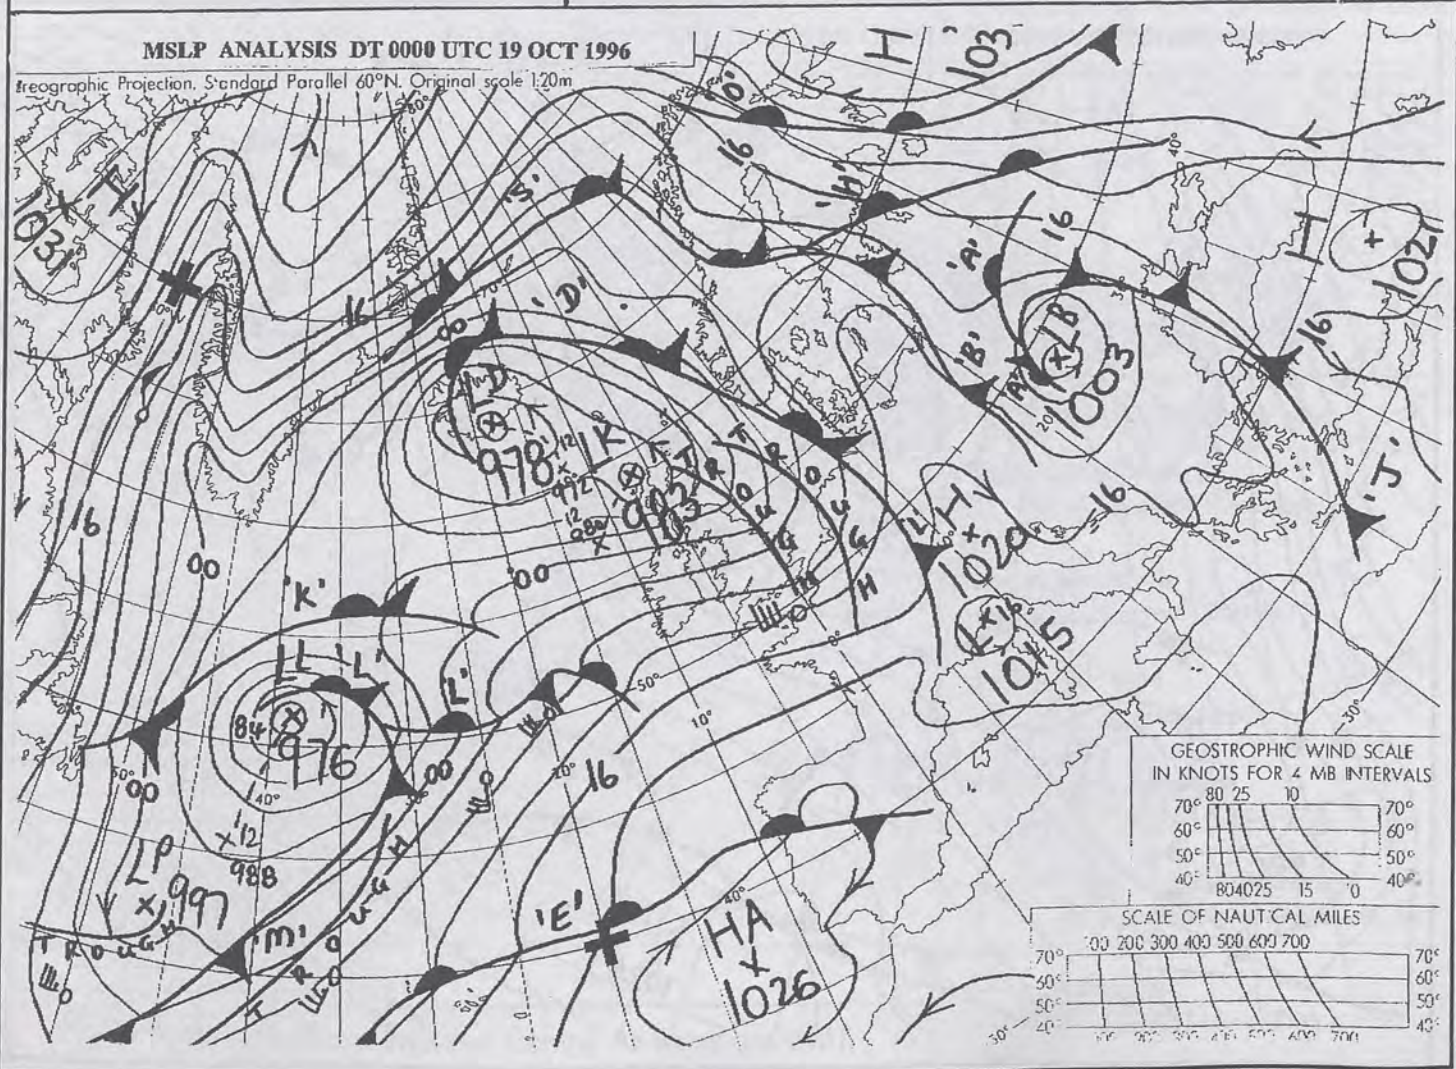 MSLP ANALYSIS DT 0000 UTC 19 OCT 1996
reographic Projection. Standard Parallel 60°N. Original scale 1:20m
H 103
'O'
16
'H'
H 1031
'S'
16
'A'
16
H 1021
'D'
00
LB 1003
'B'
'A'
16
LD 978
12
992
LK
12
980
TROUGH
TROUGH
'L'
H 1020
16
'J'
16
00
00
'K'
L 1015
LL 976
84
'L'
'L'
50°
10°
20°
00
00
16
50°
40°
12
988
LP 997
TROUGH
'M'
TROUGH
'E'
HA 1026
40°
30°
40°
20°
0°
30°
GEOSTROPHIC WIND SCALE
IN KNOTS FOR 4 MB INTERVALS
80 25 10
70° 70°
60° 60°
50° 50°
40° 40°
804025 15
SCALE OF NAUTICAL MILES
100 200 300 400 500 600 700
70° 70°
60° 60°
50° 50°
40° 40°
100 200 300 400 500 600 700